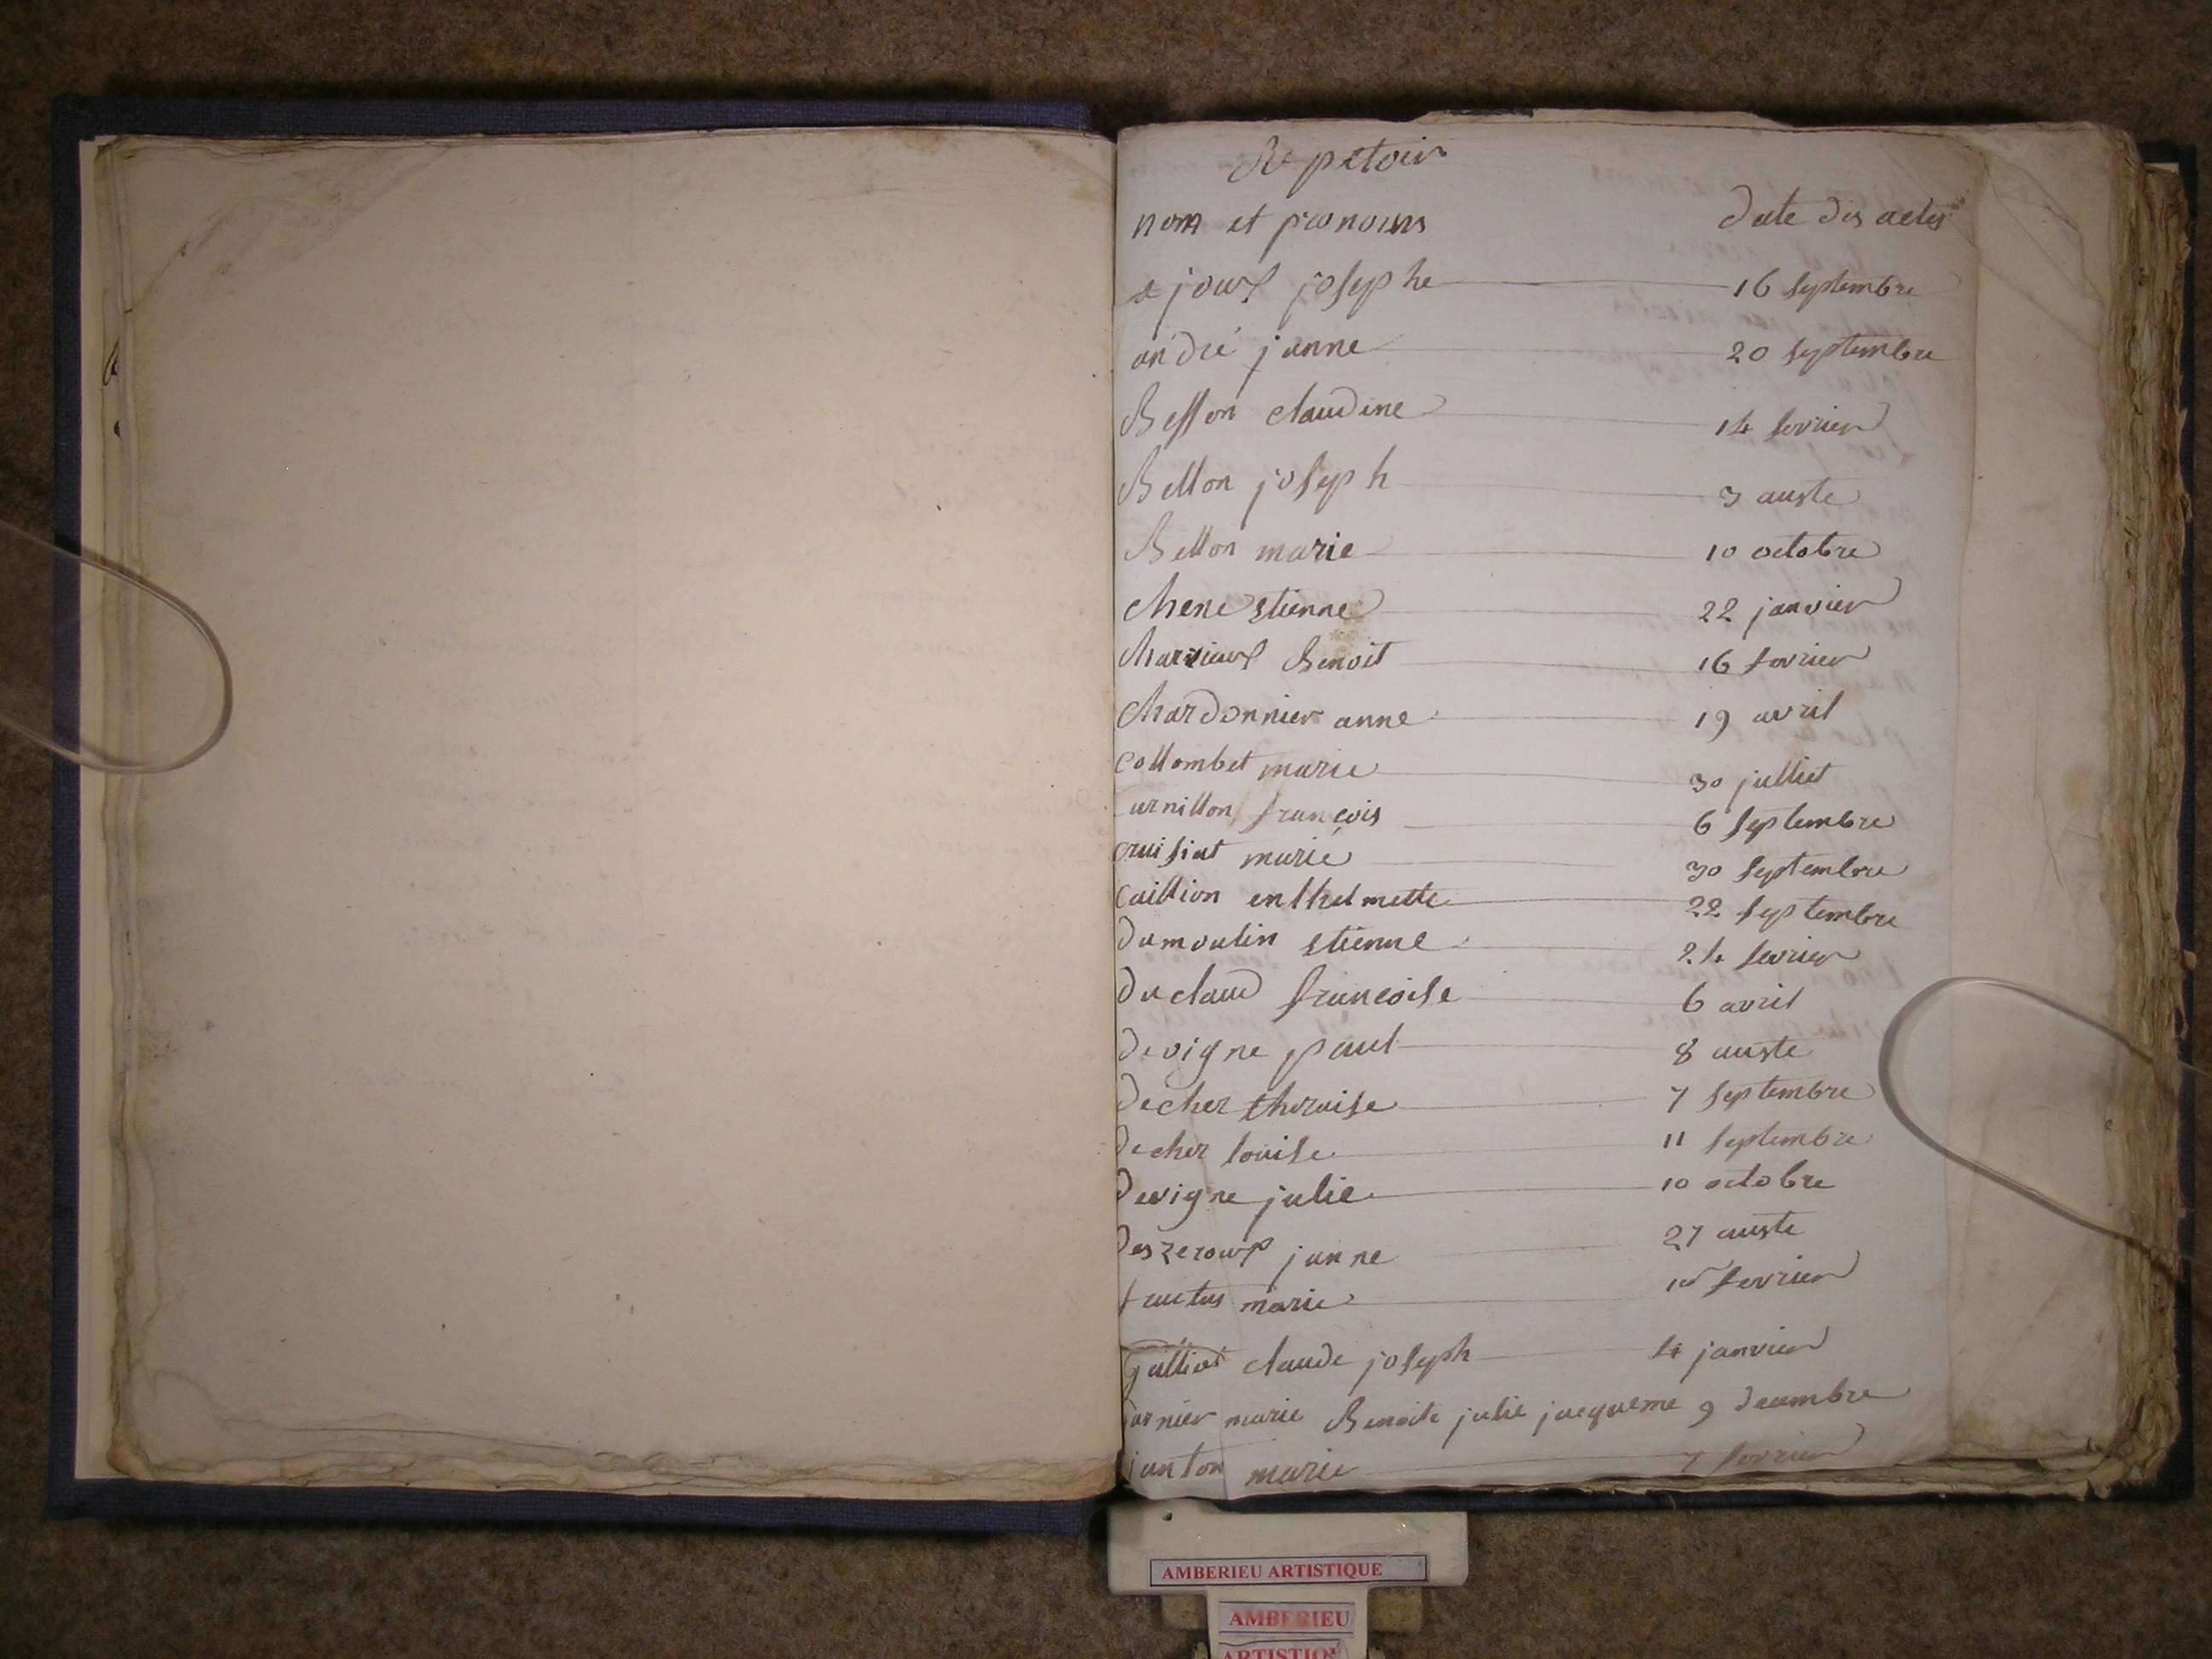 Repetoir
nom et pronoms date des actes
ajoux josephe 16 septembre
andré janne 20 septembre
Besson claudine 14 fevrier
Bellon joseph 3 auste
Bellon marie 10 octobre
chene etienne 22 janvier
charvieux Benoit 16 fevrier
chardonnier anne 19 avril
collombet marie 30 julliet
curnillon francois 6 septembre
cruisiat marie 30 septembre
caillion enthelmette 22 septembre
dumoulin etienne 24 fevrier
du claud francoise 6 avril
devigne paul 8 auste
decher theraise 7 septembre
decher louise 11 septembre
devigne julie 10 octobre
janne 27 auste
fructus marie 1er fevrier
claude joseph 4 janvier
marie Benoite julie jacqueme 9 decembre
janton marie 7 fevrier
AMBERIEU ARTISTIQUE
AMBERIEU
ARTISTIQUE